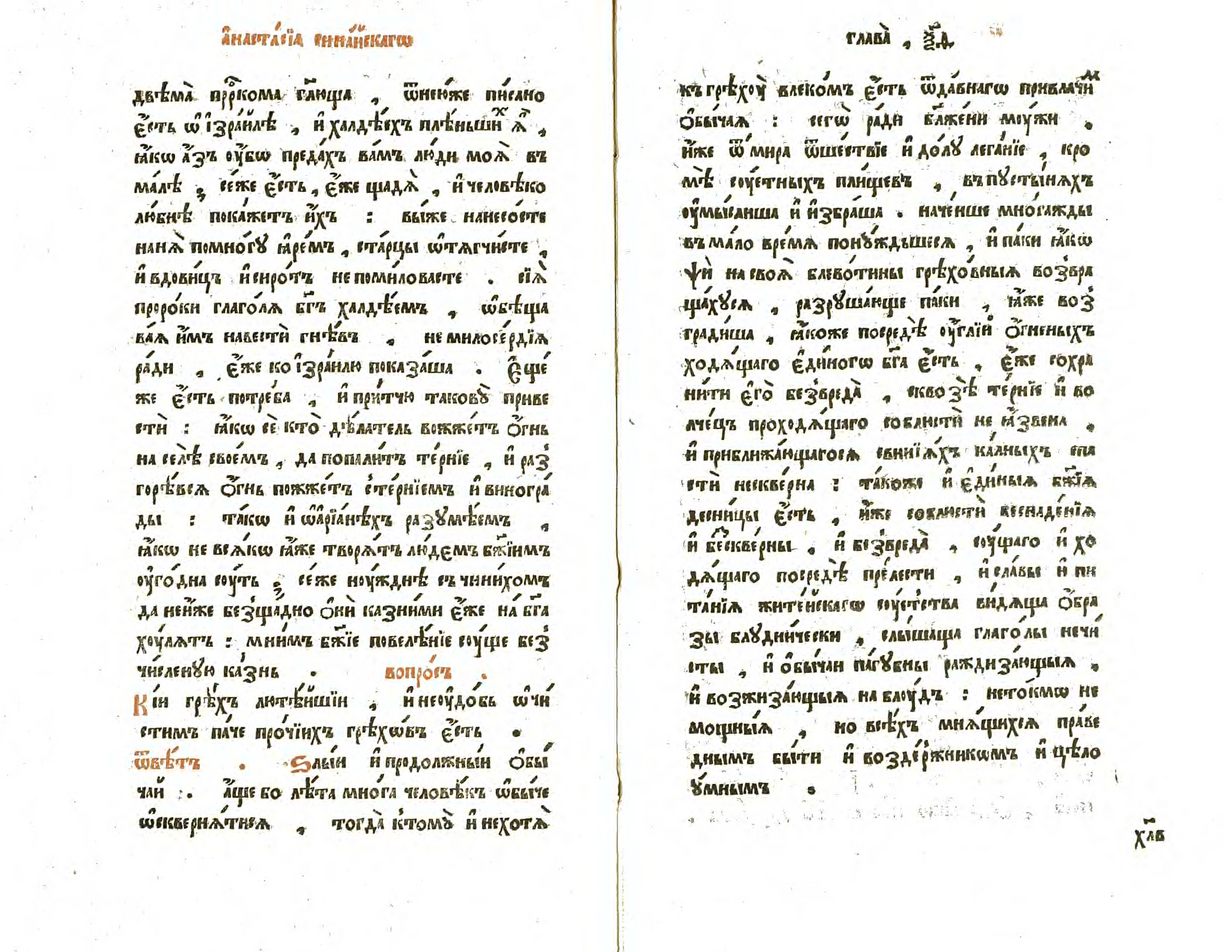 а҆наста́сїа сина́йскагѡ
двѣ́ма прⷪ҇ро́кома гл҃юща , ѿнею́же пи́сано
є҆́сть ѡ҆ і҆зра́илѣ , и҆ халдѣ́ехъ плѣ́ньшиⷯ ѧ҆̀ ,
ꙗ҆́кѡ а҆́зъ ᲂу҆́бѡ преда́хъ ва́мъ лю́ди моѧ̀ въ
ма́лѣ ; се́же є҆́сть , є҆́же щадѧ̀ , и҆ человѣко
лю́бнѣ пока́жетъ и҆̀хъ : вы́же нанесо́сте
нанѧ̀ помно́гꙋ ꙗ҆ре́мъ , ста́рцы ѡ҆тѧгчи́сте ,
и҆ вдови́цъ и҆ си́ротъ непоми́ловасте . сїѧ̀
проро́ки глаго́лѧ бг҃ъ халдѣ́емъ , ѡ҆бѣща
ва́ѧ и҆̀мъ навестѝ гнѣ́въ , немилосе́рдїѧ
ра́ди , є҆́же ко і҆зра́илю показа́ша . є҆́ще
же є҆́сть потре́ба , и҆ при́тчю такову̀ приве
стѝ : ꙗ҆́кѡ се́ кто̀ дѣ́латель вожже́тъ ѻ҆́гнь
на се́лѣ свое́мъ , да попали́тъ те́рнїе , и҆ раз̾
горѣ́всѧ ѻ҆́гнь пожже́тъ сте́рнїемъ и҆ виногра́
ды : та́кѡ и҆ ѡ҆а҆рїа́нѣхъ разꙋмѣ́емъ ,
ꙗ҆́кѡ не всѧ́кѡ ꙗ҆́же творѧ́тъ лю́демъ бж҃їимъ
ᲂу҆го́дна сᲂу́ть ; се́же нᲂу́жднѣ съчини́хомъ
да неи҆́же безща́дно ѻ҆нѝ ка́зними є҆́же на́ бг҃а
хᲂу́лѧтъ : мни́мъ бж҃їе повелѣ́нїе сᲂу́ще без̾
чи́сленꙋю ка́знь . вопро́съ .
Кі́и грѣ́хъ лютѣ́йшїи , и҆ неᲂу҆до́бь ѡ҆чи́
стимъ па́че про́чїихъ грѣхѡ́въ є҆́сть .
ѿвѣ́тъ . Ѕлы́и и҆ продо́лжныи ѻ҆бы́
чаи . а҆́ще бо лѣ́та мно́га человѣ́къ ѡ҆бы́че
ѡ҆сквернѧ́тисѧ , тогда̀ ктомꙋ̀ и҆ нехотѧ̀
глава̀ , ѯ҃д .
къ грѣхᲂу̀ влеко́мъ є҆́сть ѿда́внагѡ привлачи́ⷨ
ѻ҆бы́чаѧ : сегѡ̀ ра́ди бл҃же́ни мᲂу́жи .
и҆́же ѿ ми́ра ѿше́ствїе и҆ до́лꙋ лега́нїе , кро
мѣ̀ сᲂу́етныхъ пли́щевъ , въ пᲂусты́нѧхъ
ᲂу҆мы́слиша и҆ и҆збра́ша . наче́нше мно́гажды
въ ма́ло вре́мѧ понꙋ́ждьшесѧ , и҆ па́ки ꙗ҆́кѡ
ѱѝ на своѧ̀ блево́тины грѣхо́вныѧ возвра
ща́хꙋсѧ , разрꙋша́юще па́ки , ꙗ҆́же воз̾
гради́ша , ꙗ҆́коже посредѣ̀ ᲂу҆́глїи ѻ҆́гненыхъ
ходѧ́щаго є҆ди́ногѡ бг҃а є҆́сть , є҆́же сохра
ни́ти є҆го̀ безвреда̀ , сквозѣ̀ те́рнїе и҆ во
лче́цъ проходѧ́щаго соблюстѝ не ꙗ҆́звена ,
и҆ приближа́ющагосѧ свинїѧ́хъ ка́лныхъ спа
стѝ нескве́рна : та́коже и҆ є҆ди́ныѧ бж҃їѧ
десни́цы є҆́сть , и҆́же соблюстѝ беспаде́нїѧ
и҆ бескве́рны , и҆ безвреда̀ , сᲂу́щаго и҆ хо
дѧ́щаго посредѣ̀ пре́лести , и҆ сла́вы и҆ пи
та́нїѧ жите́йскагѡ сᲂу́етства ви́дѧща ѻ҆́бра
зы блꙋдни́чески , слы́шаща глаго́лы нечи́
сты , и҆ ѻ҆бы́чаи па́гꙋбны раждиза́ющыѧ ,
и҆ возжиза́ющыѧ на блᲂу́дъ : нето́кмѡ не
мощны́ѧ , но всѣ́хъ мнѧ́щихсѧ пра́ве
днымъ бы́ти и҆ возде́ржникѡмъ и҆ цѣло
ᲂу́мнымъ .
хл҃в